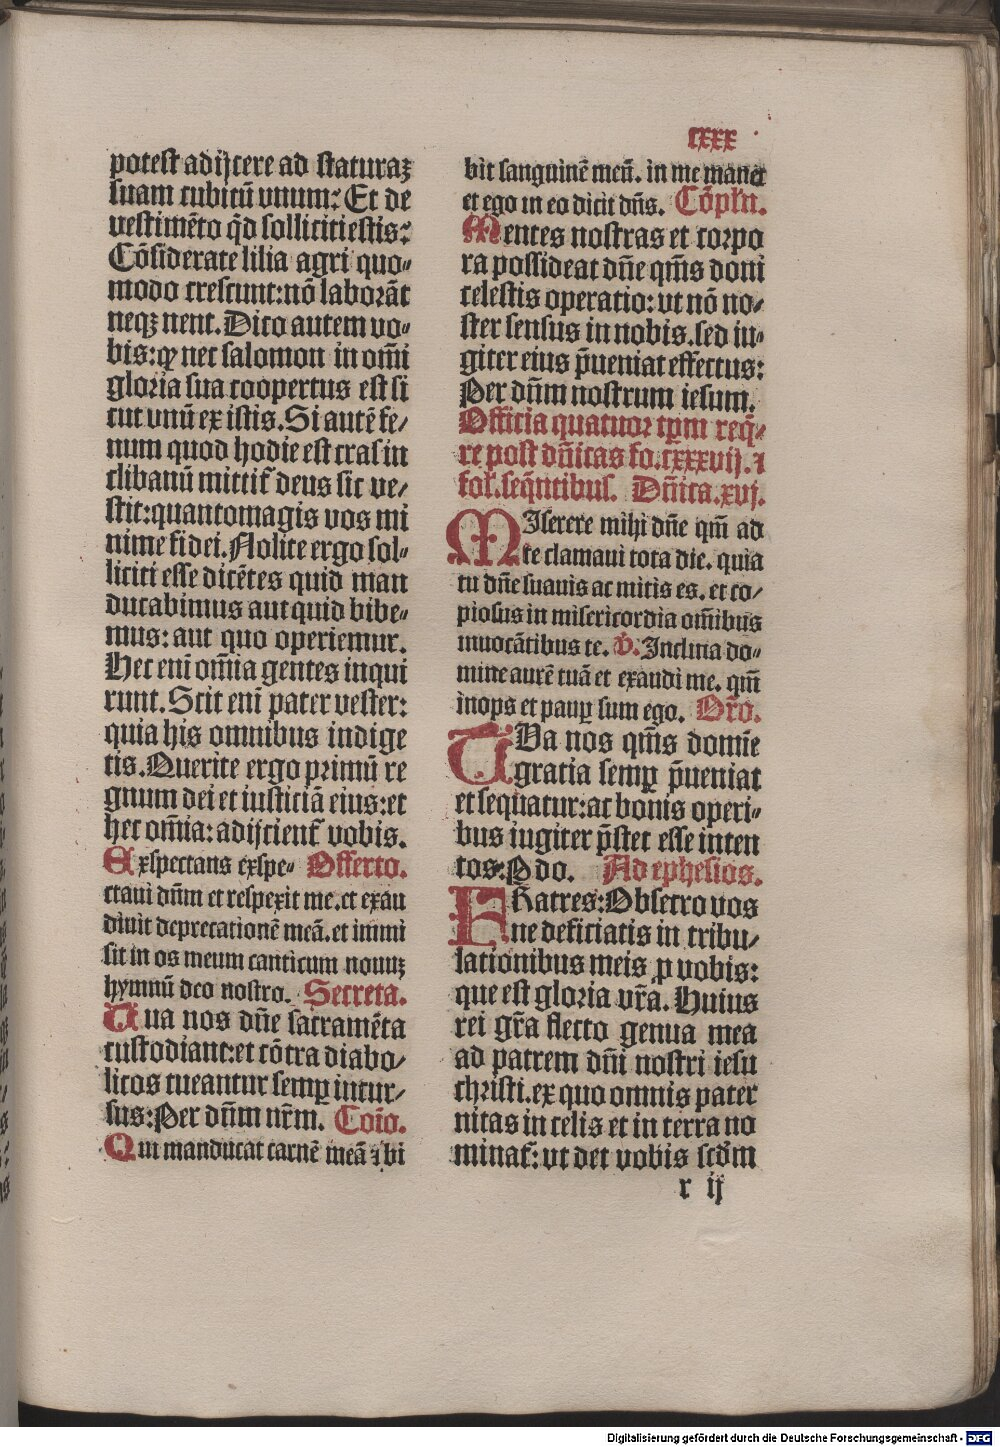 cxxx
potest adijcere ad staturaꝫ
suam cubitū vnum? Et de
vestimēto qd̄ solliciti estis?
Cōsiderate lilia agri quo⸗
modo crescunt: nō laborāt
neqꝫ nent. Dico autem vo⸗
bis: ꝙ nec salomon in om̄i
gloria sua coopertus est si
cut vnū ex istis. Si autē fe⸗
num quod hodie est cras in
clibanū mittit᷑ deus sic ve⸗
stit: quantomagis vos mi
nime fidei. Nolite ergo sol⸗
liciti esse dicētes quid man
ducabimus aut quid bibe⸗
mus: aut quo operiemur.
Hec eni̅ om̄ia gentes inqui
runt. Scit eni̅ pater vester:
quia his omnibus indige
tis. Querite ergo primū re
gnum dei et iusticiā eius: et
hec om̄ia: adijcient᷑ vobis.
Exspectans exspe⸗ Offerto.
ctaui dn̄m et respexit me. et exau
diuit deprecationē meā. et immi
sit in os meum canticum nouuꝫ
hymnū deo nostro. Secreta.
Tua nos dn̄e sacramēta
custodiant: et cōtra diabo⸗
licos tueantur semꝑ incur⸗
sus: Per dn̄m nr̄m. Coīo.
Qui manducat carnē meā ⁊ bi
bit sanguinē meū. in me manet
et ego in eo dicit dn̄s. Cōpln̄.
Mentes nostras et corpo
ra possideat dn̄e qm̄s doni
celestis operatio: vt nō no⸗
ster sensus in nobis. sed iu⸗
giter eius p̄ueniat effectus:
Per dn̄m nostrum iesum.
Officia quatuor tꝑm req̄⸗
re post dn̄icas fo. cxxxvij. ⁊
fol. seq̄ntibus. Dn̄ica. xvj.
MIserere mihi dn̄e qm̄ ad
te clamaui tota die. quia
tu dn̄e suauis ac mitis es. et co⸗
piosus in misericordia om̄ibus
inuocātibus te. v̄. Inclina do⸗
mine aurē tuā et exaudi me. qm̄
inops et pauꝑ sum ego. Or̄o.
TUa nos qm̄s domi̅e
gratia semꝑ p̄ueniat
et sequatur: ac bonis operi⸗
bus iugiter p̄stet esse inten
tos: P do. Ad ephesios.
FRatres: Obsecro vos
ne deficiatis in tribu⸗
lationibus meis ꝓ vobis:
que est gloria vr̄a. Huius
rei gr̄a flecto genua mea
ad patrem dn̄i nostri iesu
christi. ex quo omnis pater
nitas in celis et in terra no
minat᷑: vt det vobis scd̄m
r ij
Digitalisierung gefördert durch die Deutsche Forschungsgemeinschaft - DFG